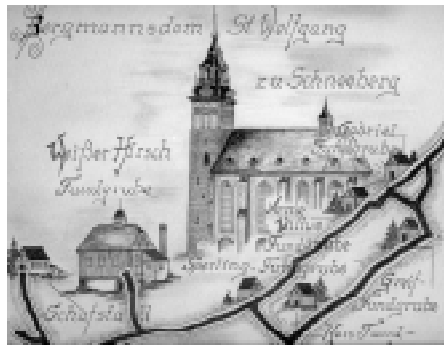 Bergmannsdom St. Wolfgang
zu Schneeberg
Weißer Hirsch
Fundgrube
Gabriel
Fundgrube
Fundgrube
Sperling-Fundgrube
Schafstall
Greif-
Fundgrube